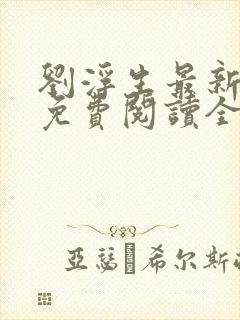 劉浮生最新
免費閱讀全
亞瑟 希尔斯